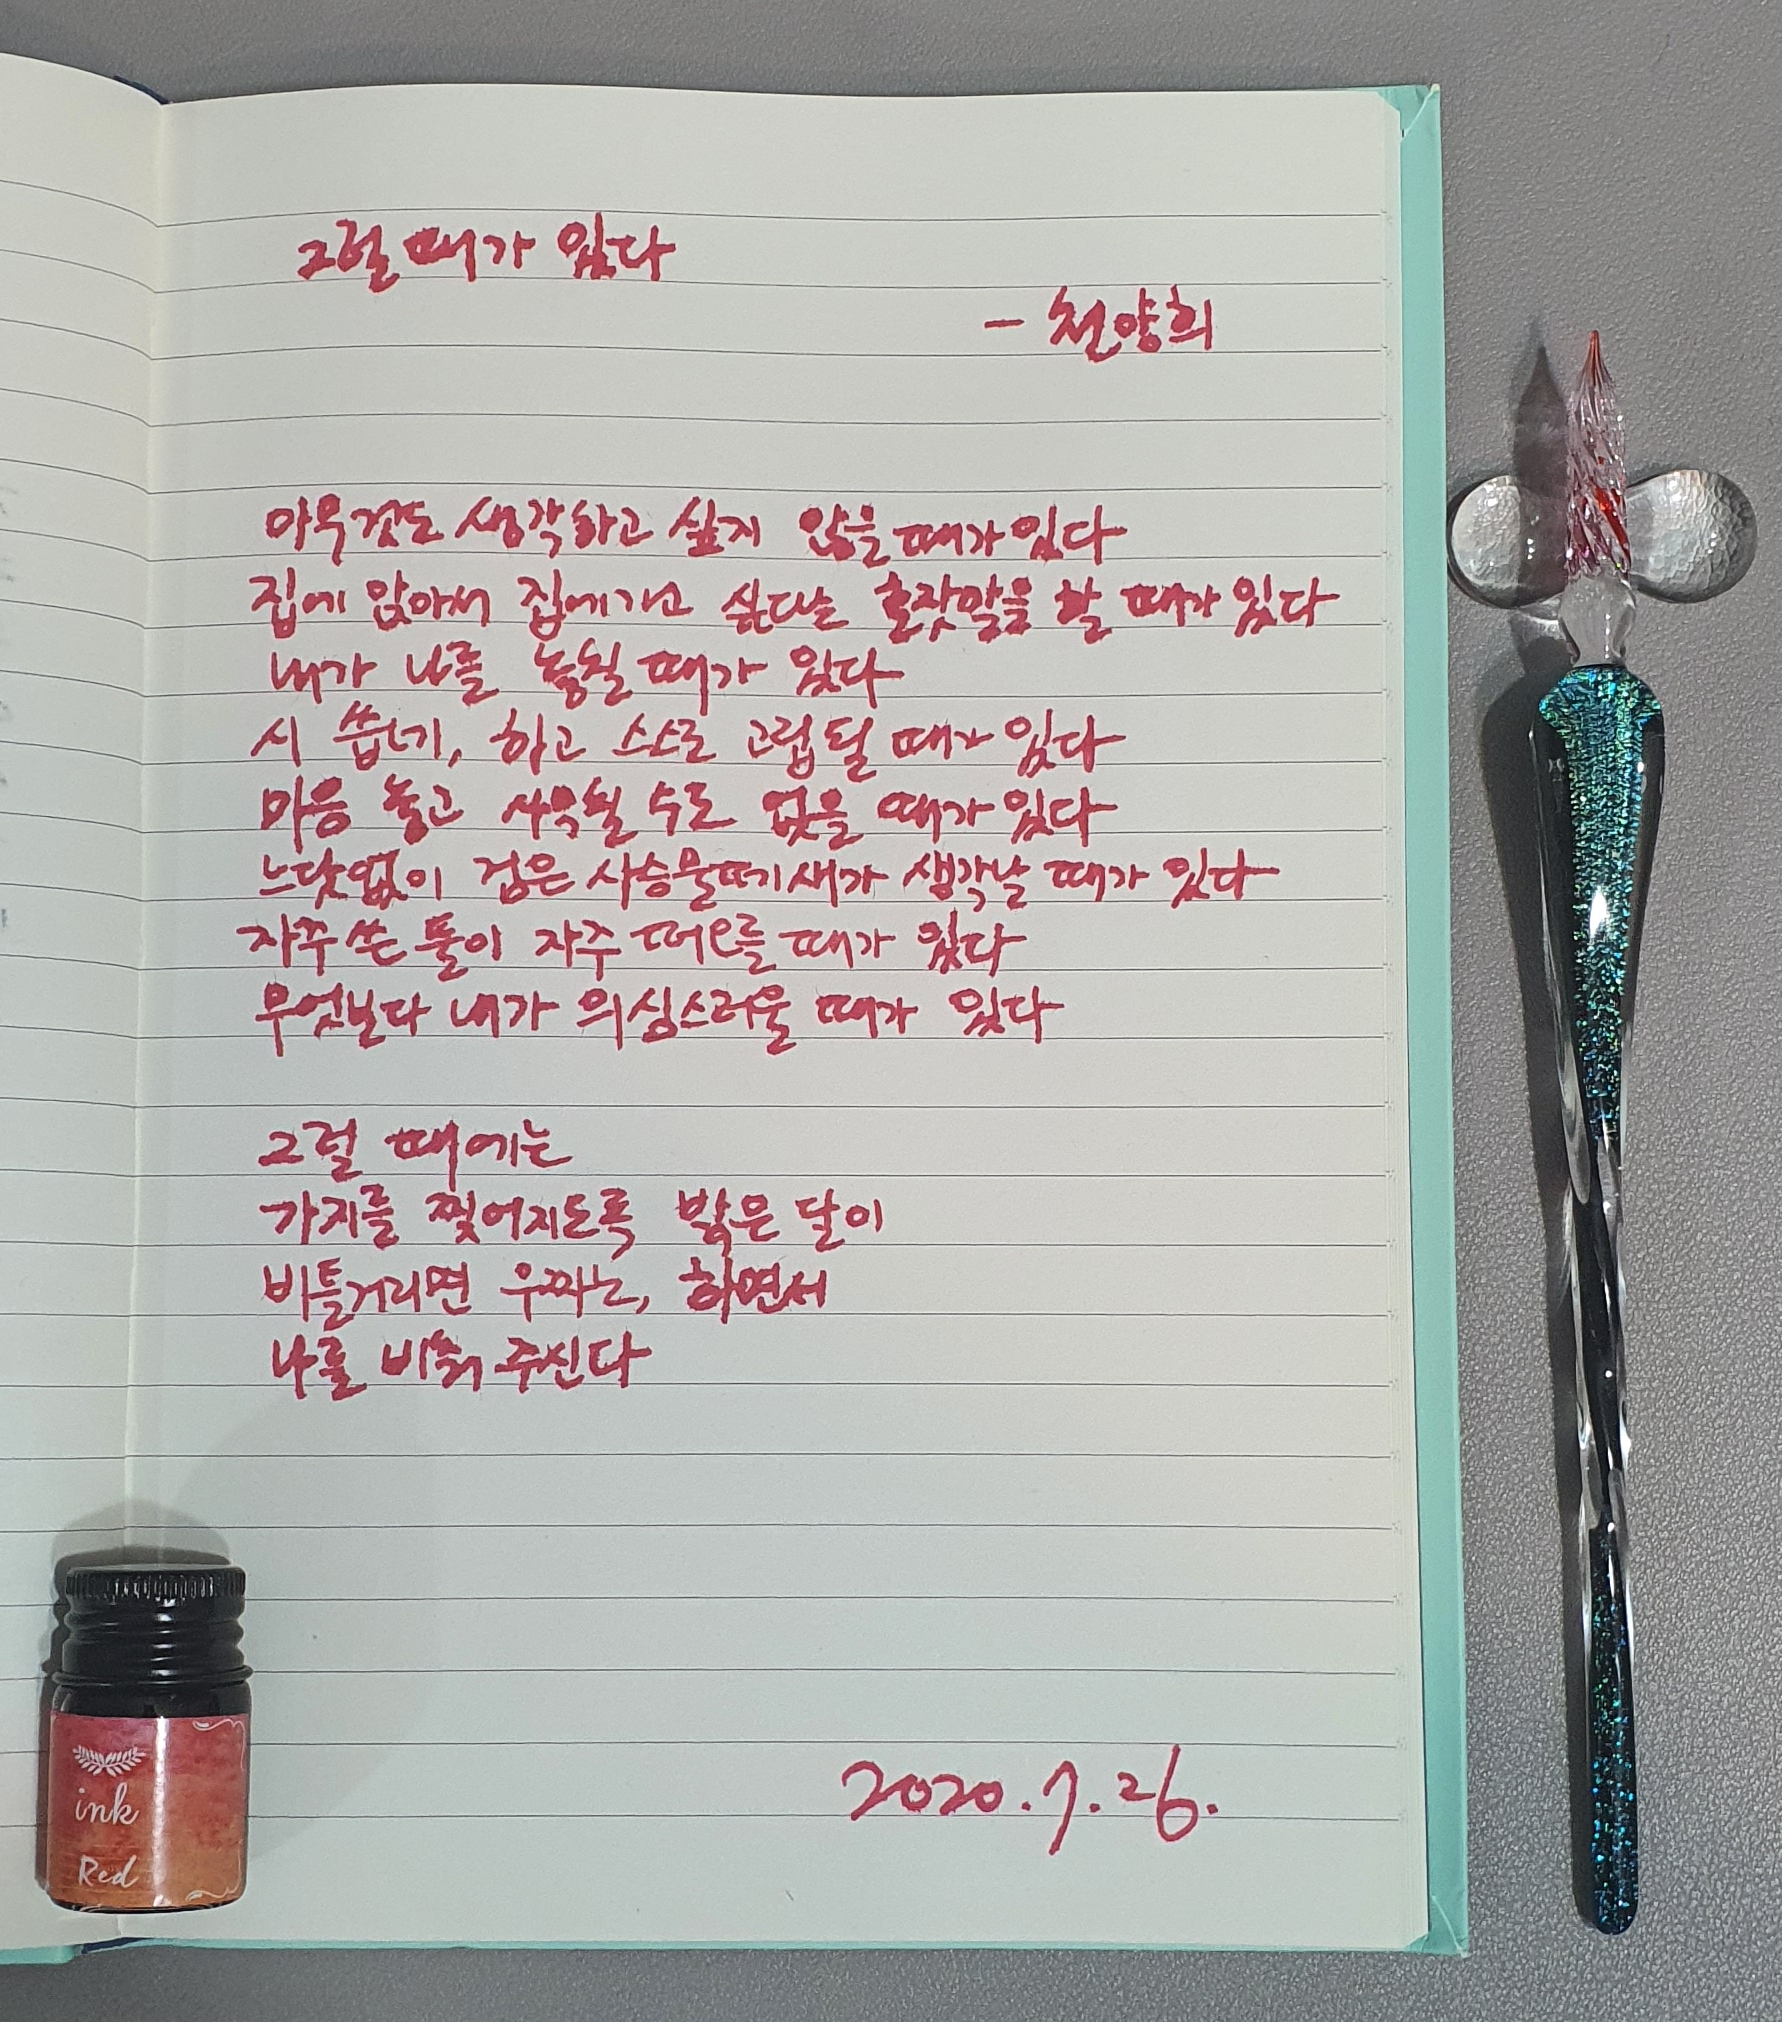 그럴 때가 있다
- 천양희
아무것도 생각하고 싶지 않을 때가 있다
집에 앉아서 집에 가고 싶다는 혼잣말을 할 때가 있다
내가 나를 놓칠 때가 있다
시 씁네, 하고 스스로 고립될 때가 있다
마음 놓고 사욕칠 수도 없을 때가 있다
느닷없이 검은 사슴물떼새가 생각날 때가 있다
자주 쓴 풀이 자주 떠오를 때가 있다
무엇보다 내가 의심스러울 때가 있다
그럴 때에는
가지를 찢어지도록 밝은 달이
비틀거리면 우짜노, 하면서
나를 비춰 주신다
2020.7.26.
ink
Red